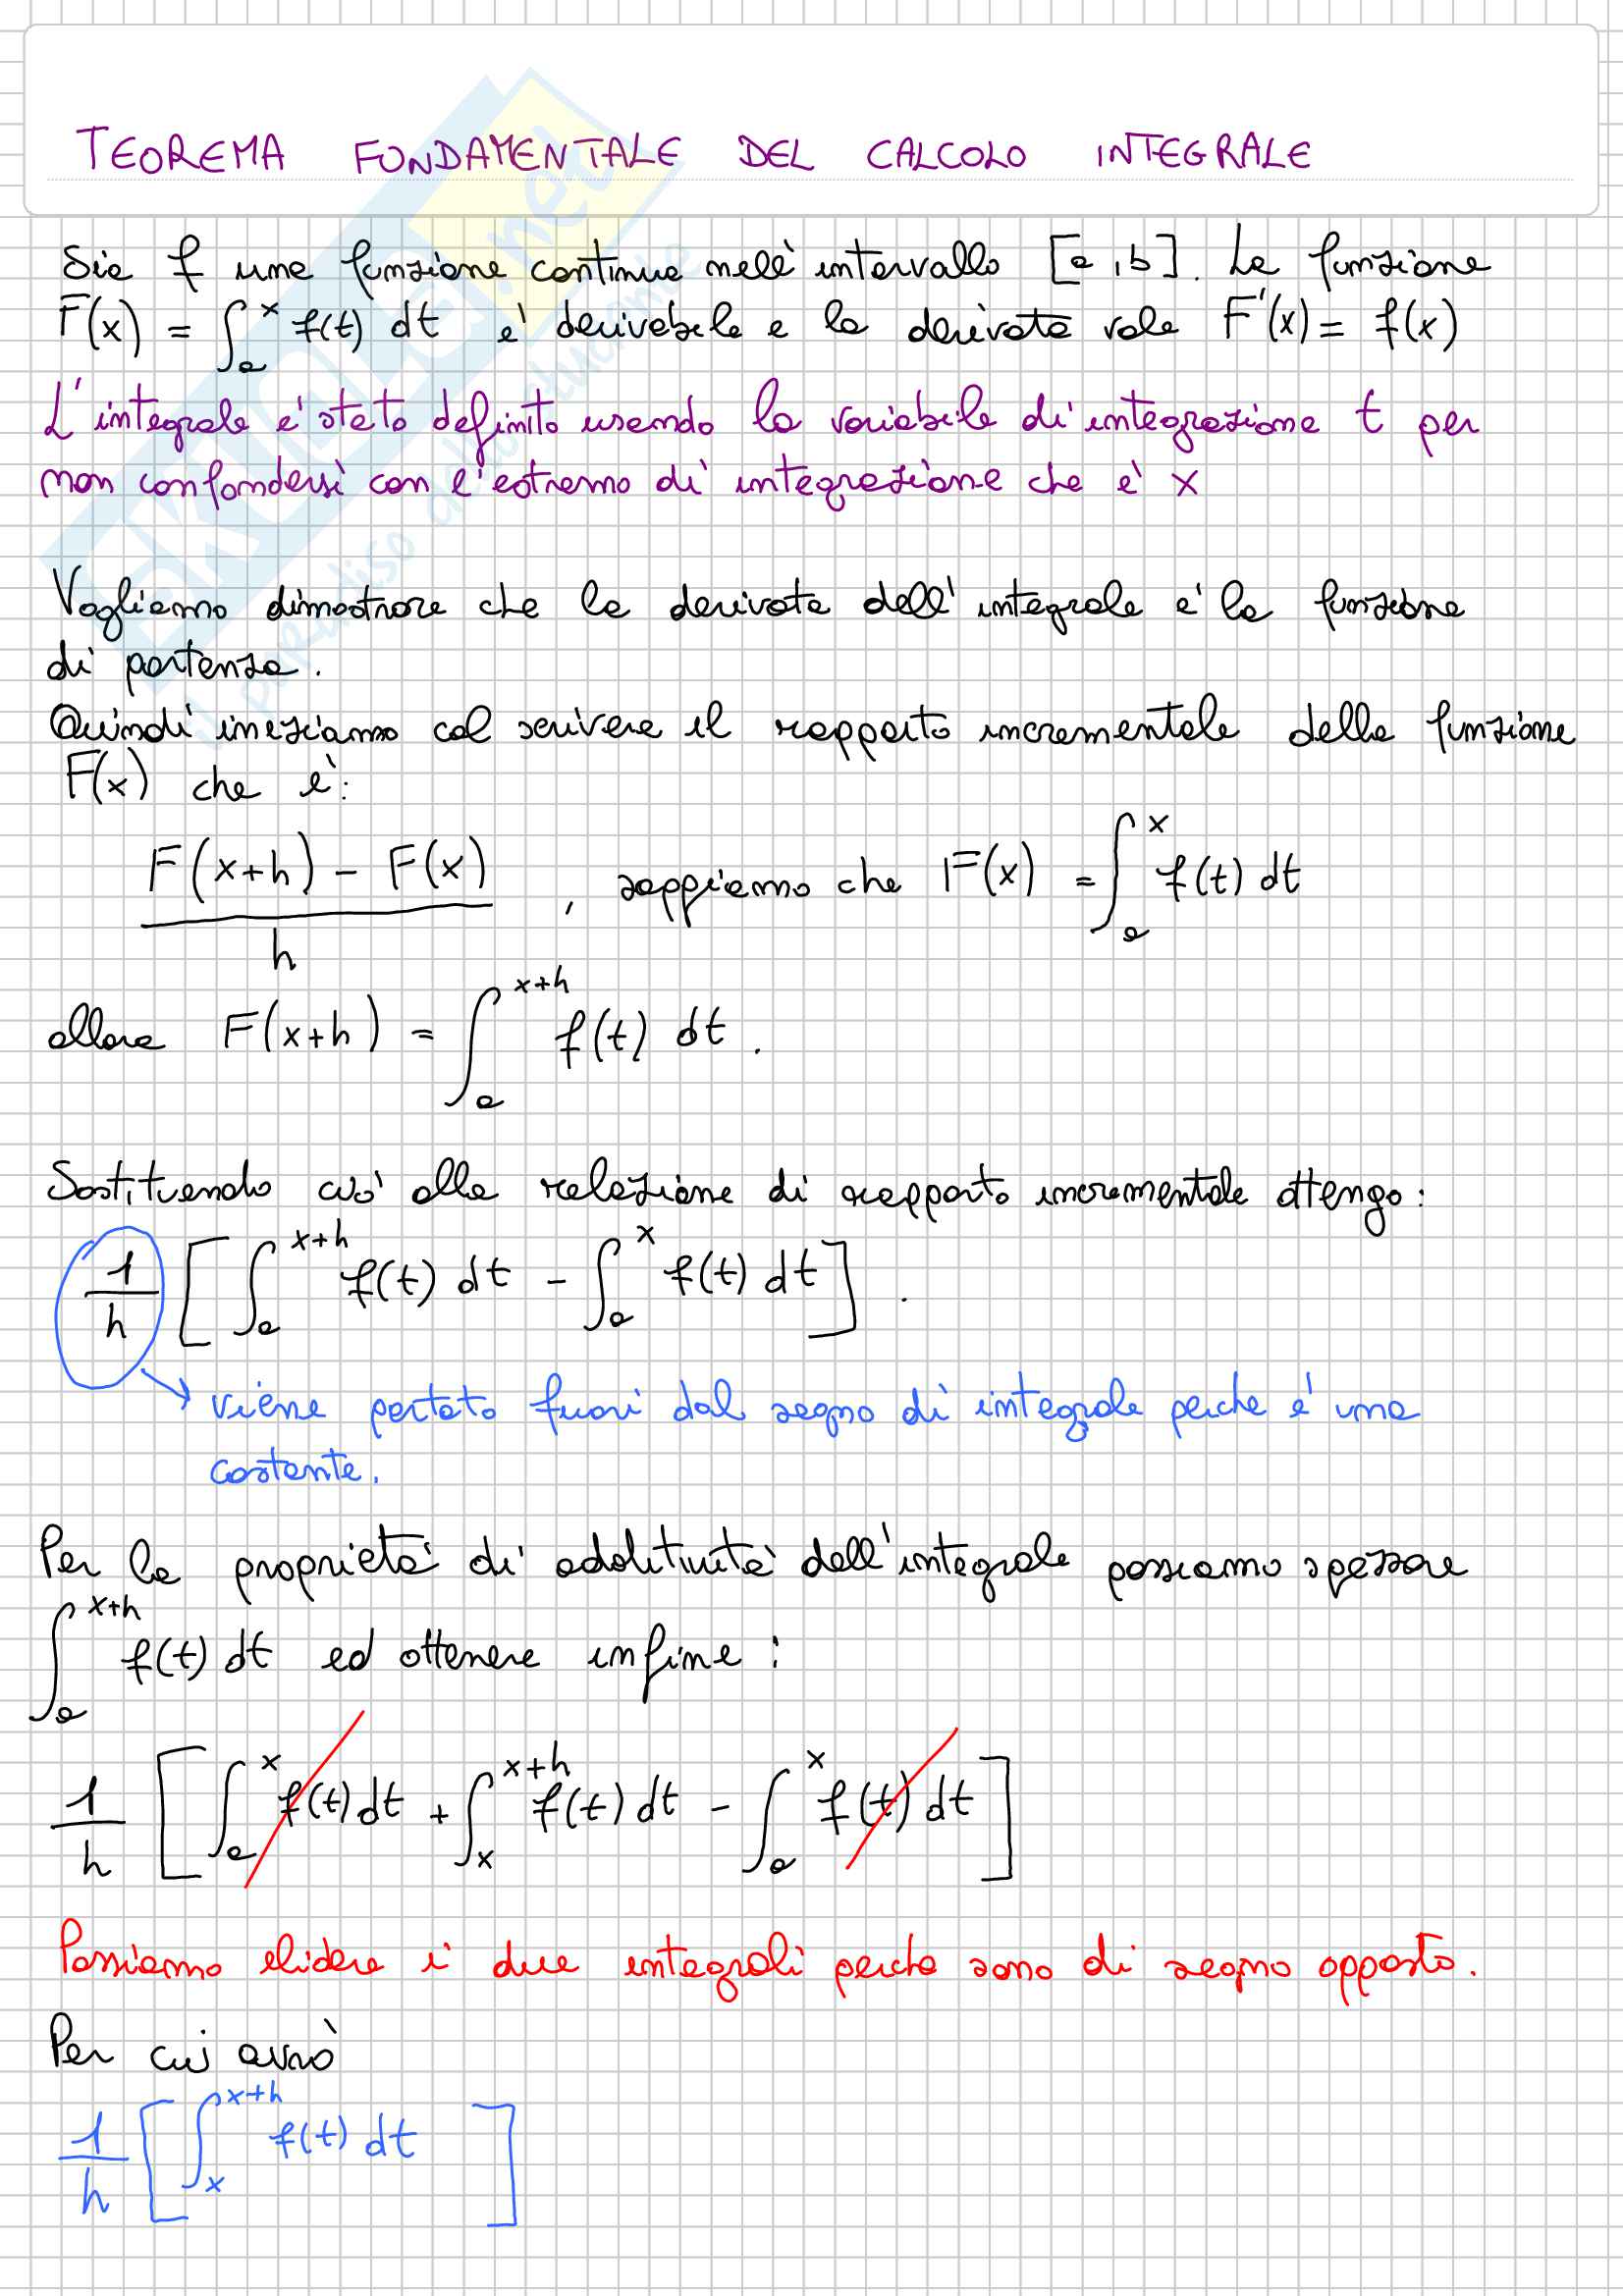 TEOREMA FONDAMENTALE DEL CALCOLO INTEGRALE
Sia f una funzione continua nell'intervallo [a, b]. La funzione
F(x) = ∫ₐˣ f(t) dt e' derivabile e la derivata vale F'(x) = f(x)
L'integrale e' stato definito usando la variabile di integrazione t per
non confondersi con l'estremo di integrazione che e' x
Vogliamo dimostrare che la derivata dell'integrale e' la funzione
di partenza.
Quindi iniziamo col scrivere il rapporto incrementale della funzione
F(x) che è:
F(x+h) - F(x) / h , sappiamo che F(x) = ∫ₐˣ f(t) dt
allora F(x+h) = ∫ₐˣ⁺ʰ f(t) dt .
Sostituendo ciò alla relazione di rapporto incrementale ottengo:
1/h [ ∫ₐˣ⁺ʰ f(t) dt - ∫ₐˣ f(t) dt ] .
viene portato fuori dal segno di integrale perche e' una
costante.
Per la proprietà di additività dell'integrale possiamo spezzare
∫ₐˣ⁺ʰ f(t) dt ed ottenere infine :
1/h [ ∫ₐˣ f(t) dt + ∫ₓˣ⁺ʰ f(t) dt - ∫ₐˣ f(t) dt ]
Possiamo elidere i due integrali perche sono di segno opposto.
Per cui avrò
1/h [ ∫ₓˣ⁺ʰ f(t) dt ]
SKUOLA.net
il paradiso dello studente